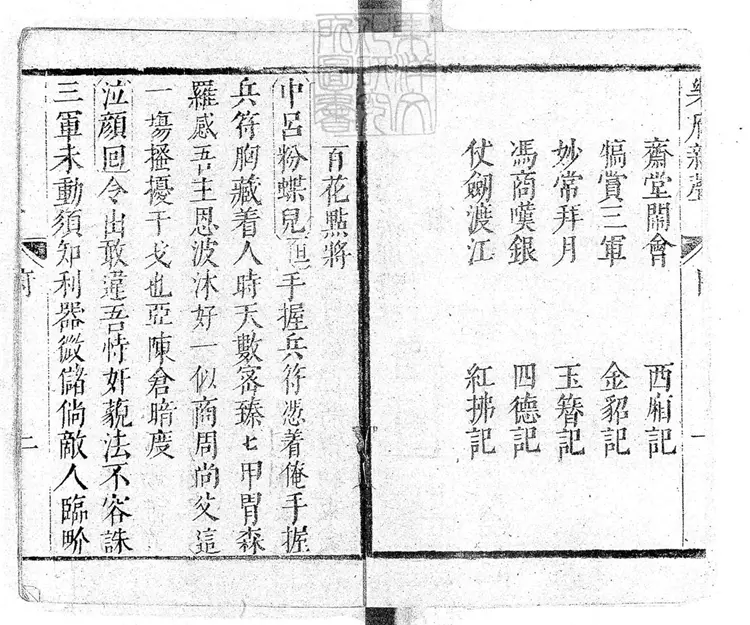 齋堂鬧會 西廂記
犒賞三軍 金貂記
妙常拜月 玉簪記
馮商嘆銀 四德記
仗劍渡江 紅拂記
百花點將
中呂粉蝶兒 旦 手握兵符憑着俺手握
兵符胸藏着人時天數寄臻七甲冑森
羅感吾主恩波沐好一似商周尚父這
一塲擾干戈也亞陳倉暗度
泣顏回 令出敢違吾恃奸藐法不容誅
三軍未動須知利器微儲倘敵人臨
二